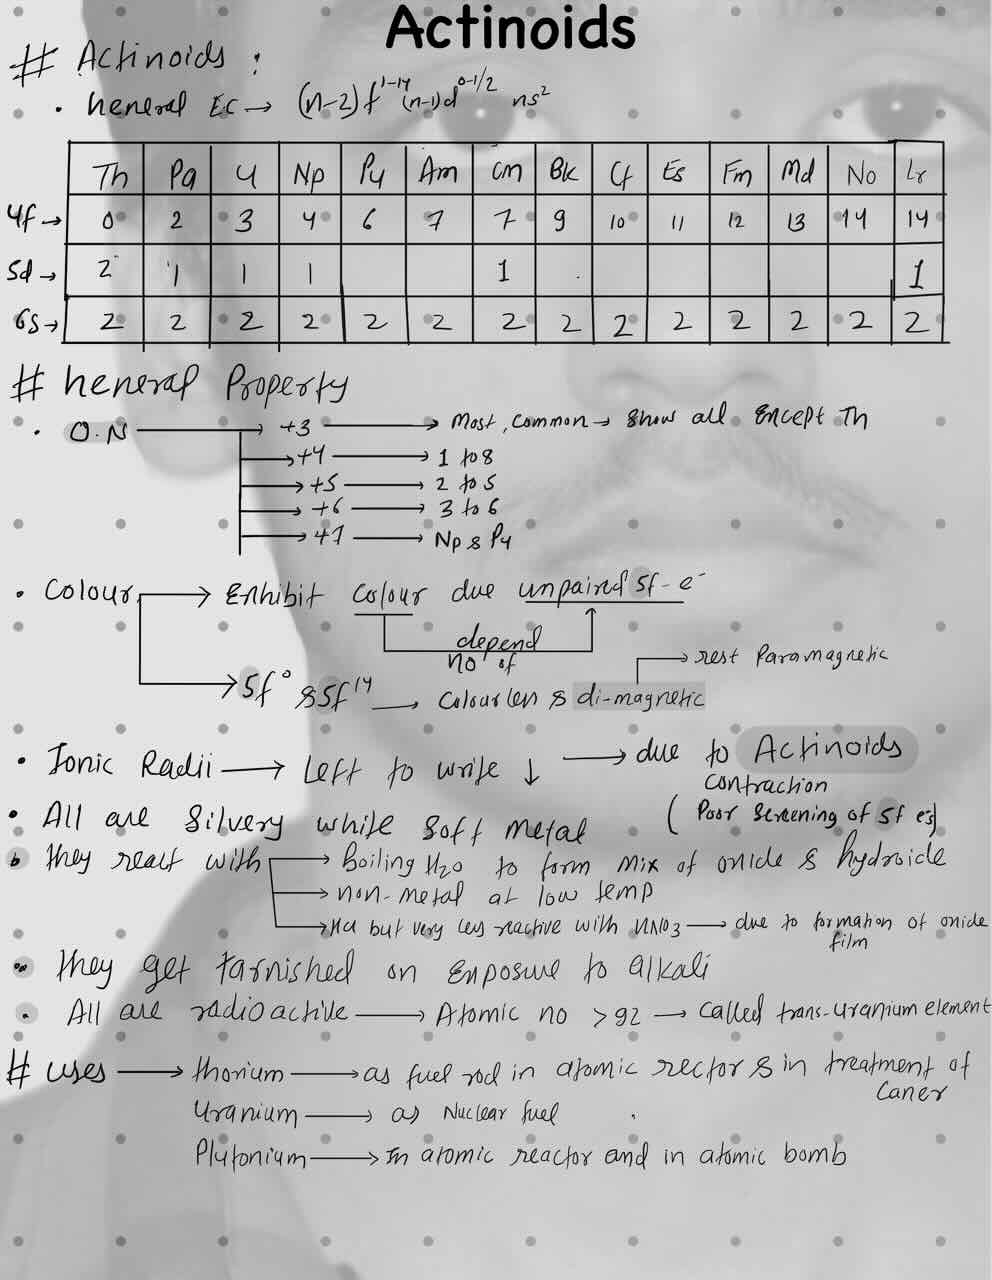 Actinoids
# Actinoids :
• General EC → (n-2)f¹⁻¹⁴ (n-1)d⁰⁻¹/² ns²
Th Pa U Np Pu Am Cm Bk Cf Es Fm Md No Lr
4f → 0 2 3 4 6 7 7 9 10 11 12 13 14 14
5d → 2 1 1 1 1 1
6s → 2 2 2 2 2 2 2 2 2 2 2 2 2 2
# General Property
• O.N → +3 → Most common → show all Except Th
→ +4 → 1 to 8
→ +5 → 2 to 5
→ +6 → 3 to 6
→ +7 → Np & Pu
• Colour → Exhibit colour due unpaired 5f-e⁻
depend
no of
→ rest Paramagnetic
→ 5f⁰ & 5f¹⁴ → Colourless & di-magnetic
• Ionic Radii → Left to write ↓ → due to Actinoids
contraction
(Poor Screening of 5f e's)
• All are Silvery white Soft Metal
• they react with → boiling H₂O to form mix of oxide & hydroxide
→ non-metal at low temp
→ HCl but very less reactive with HNO₃ → due to formation of oxide
film
• they get tarnished on Exposure to alkali
• All are radioactive → Atomic no > 92 → called trans-uranium element
# uses → thorium → as fuel rod in atomic rector & in treatment of
Caner
Uranium → as Nuclear fuel
Plutonium → In atomic reactor and in atomic bomb